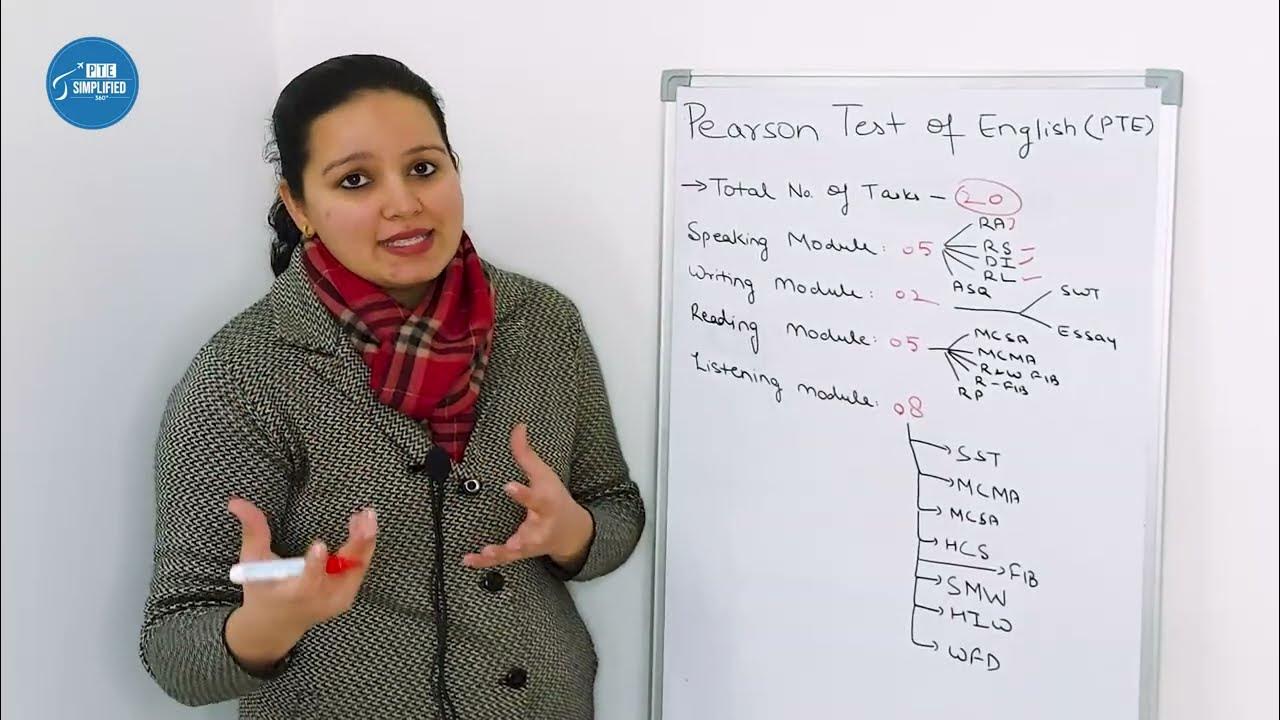 PTE
SIMPLIFIED
360°
Pearson Test of English (PTE)
→ Total No. of Tasks – 20
Speaking Module: 05
RA
RS
DI
RL
ASQ
Writing Module: 02
SWT
ESSAY
Reading Module: 05
MCSA
MCMA
R&W FIB
R-FIB
RP
Listening Module: 08
SST
MCMA
MCSA
HCS
FIB
SMW
HIW
WFD